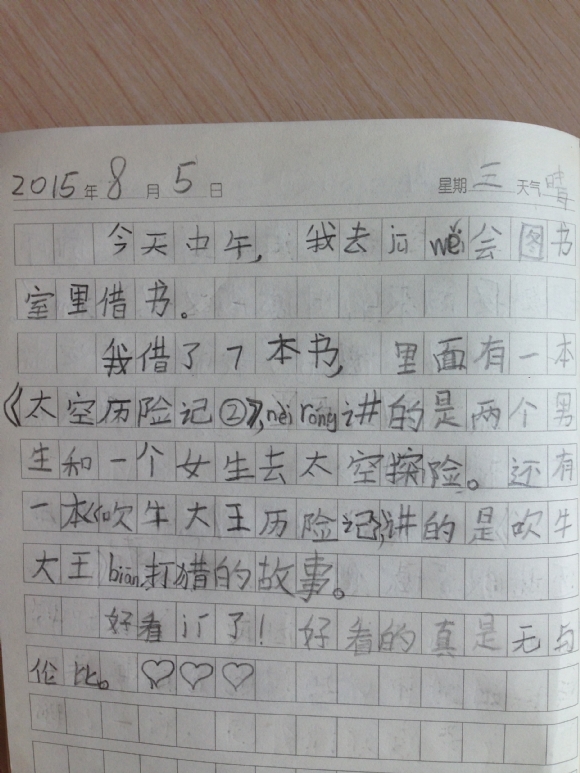 2015年8月5日 星期三 天气晴
今天中午,我去jū wěi会图书
室里借书。
我借了7本书,里面有一本
《太空历险记②》,nèi róng讲的是两个男
生和一个女生去太空探险。还有
一本《吹牛大王历险记》,讲的是吹牛
大王biān打猎的故事。
好看jí了!好看的真是无与
伦比。♡♡♡